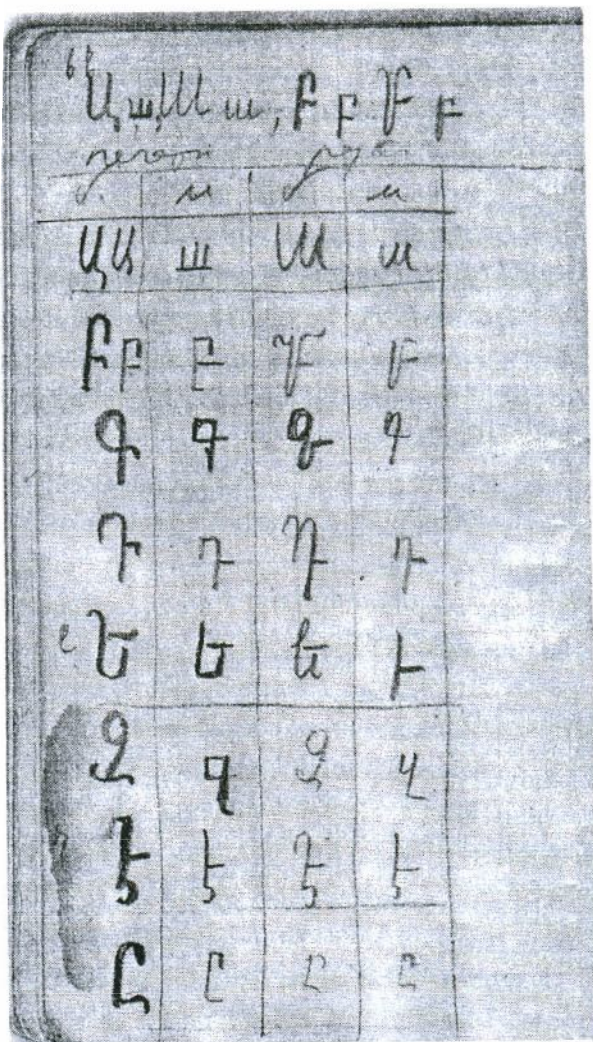 Ա ա Ա ա, Բ բ Բ բ
ԱԱ ա Ա ա
Բբ բ Բ բ
Գ գ Գ գ
Դ դ Դ դ
Ե ե Ե ե
Զ զ Զ զ
Է է Է է
Ը ը Ը ը